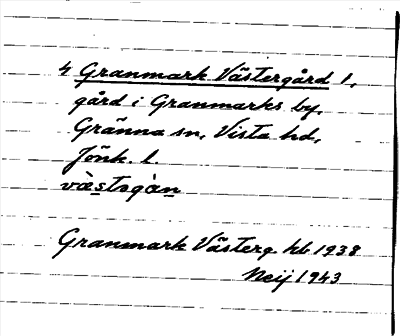 4 Granmark Västergård 1,
gård i Granmarks by,
Gränna sn, Vista hd,
Jönk. l.
vàstogàn
Granmark Västerg. hb 1938
Neij 1943